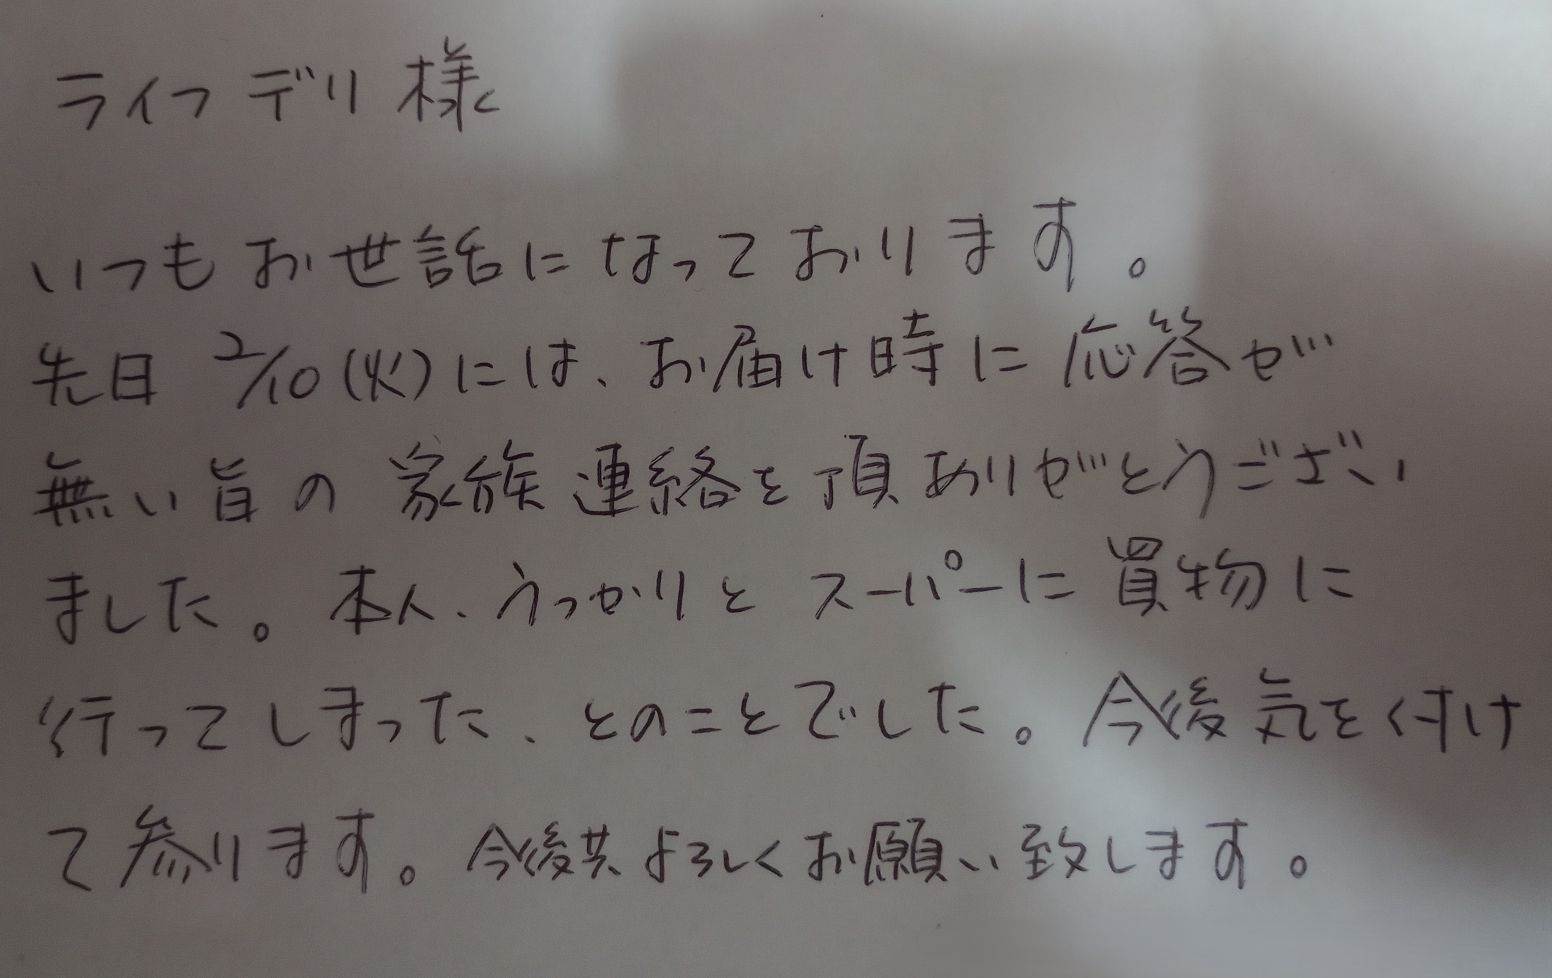 ライフデリ様
いつもお世話になっております。
先日 2/10(火)には、お届け時に応答が
無い旨の家族連絡を頂ありがとうござい
ました。本人、うっかりとスーパーに買物に
行ってしまった、とのことでした。今後気を付け
て参ります。今後共よろしくお願い致します。